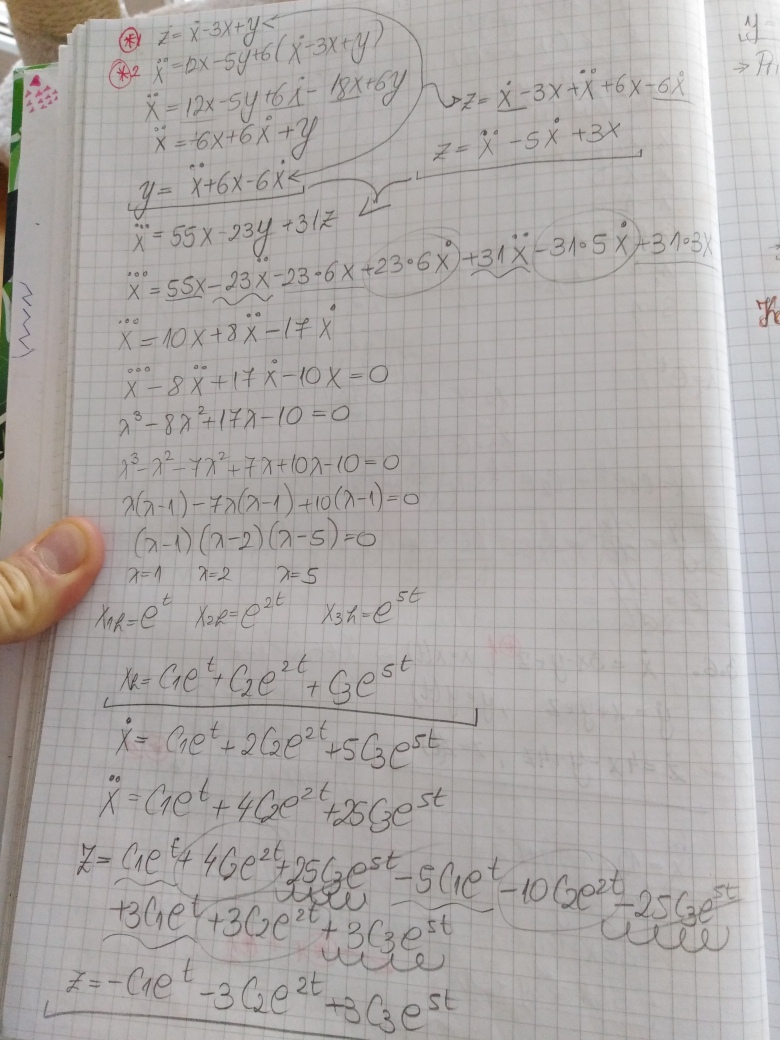 *1 z = ẋ-3x+y
*2 ẍ = 12x-5y+6(ẋ-3x+y)
ẍ = 12x-5y+6ẋ-18x+6y
ẍ = -6x+6ẋ+y
y = ẍ+6x-6ẋ
z = ẋ-3x+ẍ+6x-6ẋ
z = ẍ-5ẋ+3x
x⃛ = 55x-23y+31z
x⃛ = 55x-23ẍ-23·6x+23·6ẋ+31ẍ-31·5ẋ+31·3x
x⃛ = 10x+8ẍ-17ẋ
x⃛-8ẍ+17ẋ-10x=0
λ³-8λ²+17λ-10=0
λ³-λ²-7λ²+7λ+10λ-10=0
λ(λ-1)-7λ(λ-1)+10(λ-1)=0
(λ-1)(λ-2)(λ-5)=0
λ=1 λ=2 λ=5
x₁h=e^t x₂h=e^2t x₃h=e^5t
xh=C1e^t+C2e^2t+C3e^5t
ẋ= C1e^t+2C2e^2t+5C3e^5t
ẍ= C1e^t+4C2e^2t+25C3e^5t
z= C1e^t+4C2e^2t+25C3e^5t-5C1e^t-10C2e^2t-25C3e^5t
+3C1e^t+3C2e^2t+3C3e^5t
z=-C1e^t-3C2e^2t+3C3e^5t